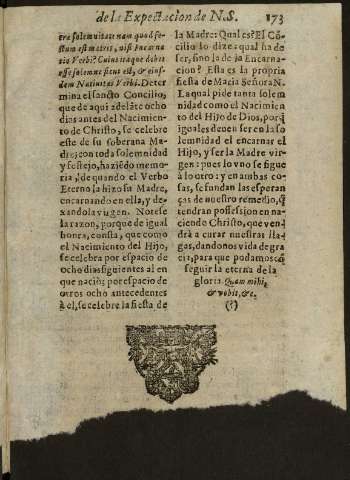 de la Expectacion de N.S. 173
ere solemnitas: nam quod fe-
stum est matris, nisi Encarna
tio Verbi? Cuius itaque debit
esse solemne sicut est, & eius-
dem Natiuitas Verbi. Deter
mina el sancto Concilio,
que de aqui adelãte ocho
dias antes del Nacimien-
to de Christo, se celebre
este de su soberana Ma-
dre; con toda solemnidad
y festejo, haziẽdo memo-
ria, de quando el Verbo
Eterno la hizo su Madre,
encarnando en ella, y de-
xandola virgen. Notese
la razon, porque de igual
honra, consta, que como
el Nacimiento del Hijo,
se celebra por espacio de
ocho dias siguientes al en
que naciò; por espacio de
otros ocho antecedentes
à el, se celebre la fiesta de
la Madre: Qual es? El Cõ-
cilio lo dize: qual ha de
ser, sino la de la Encarna-
cion? Esta es la propria
fiesta de Maria Señora N.
La qual pide tanta solem
nidad como el Nacimien
to del Hijo de Dios, porq̃
iguales deuen ser en la so
lemnidad el encarnar el
Hijo, y ser la Madre vir-
gen: pues lo vno se sigue
à lo otro: y en ambas co-
sas, se fundan las esperan
ças de nuestro remedio, q̃
tendran possession en na-
ciendo Christo, que ven-
drà a curar nuestras lla-
gas, dandonos vida de gra
cia, para que podamos cõ
seguir la eterna de la
gloria. Quam mihi,
& vobis, &c.
(?)